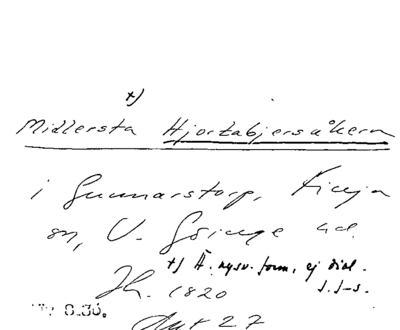 +)
Midlersta Hjortabjersåkern
i Gunnarstorp, Finja
sn, V. Göinge hd.
+) Ä. nysv. form, ej dial.
Jh. 1820 J.J-s.
Akt 27